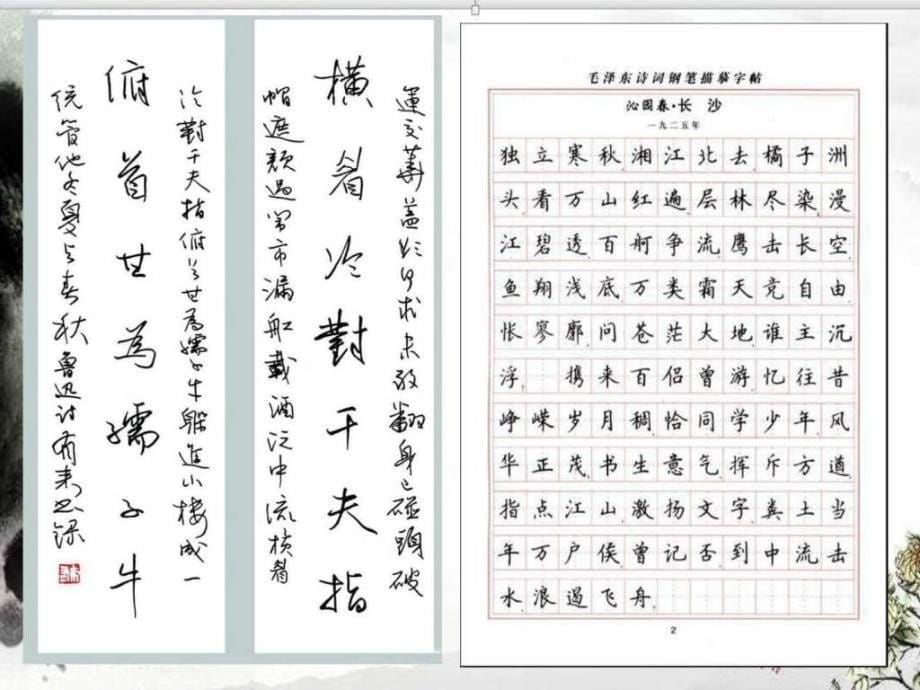 運交華蓋欲何求未敢翻身已碰頭破
橫眉冷對千夫指
帽遮顏過鬧市漏船載酒泛中流橫眉
冷對千夫指俯首甘為孺子牛躲進小樓成一
俯首甘為孺子牛
統管他冬夏与春秋 魯迅詩
毛泽东诗词钢笔描摹字帖
沁园春·长 沙
一九二五年
独立寒秋湘江北去橘子洲
头看万山红遍层林尽染漫
江碧透百舸争流鹰击长空
鱼翔浅底万类霜天竞自由
怅寥廓问苍茫大地谁主沉
浮 携来百侣曾游忆往昔
峥嵘岁月稠恰同学少年风
华正茂书生意气挥斥方遒
指点江山激扬文字粪土当
年万户侯曾记否到中流击
水浪遏飞舟
2